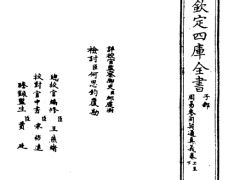 欽定四庫全書
子部
周易參同契通真義卷上
詳校官監察御史臣
檢討臣何思鈞覆勘
總校官編修臣王燕緒
校對官中書臣宋枋遠
謄錄監生臣費